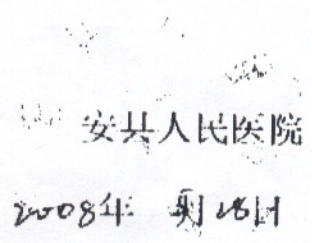 安县人民医院
2008年 月28日